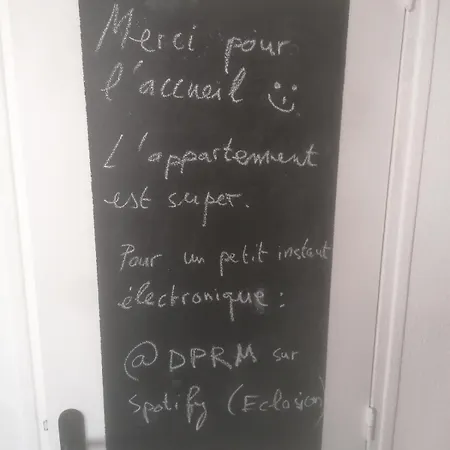 Merci pour
l'accueil :)
L'appartement
est super.
Pour un petit instant
électronique :
@DPRM sur
spotify (Eclosion)